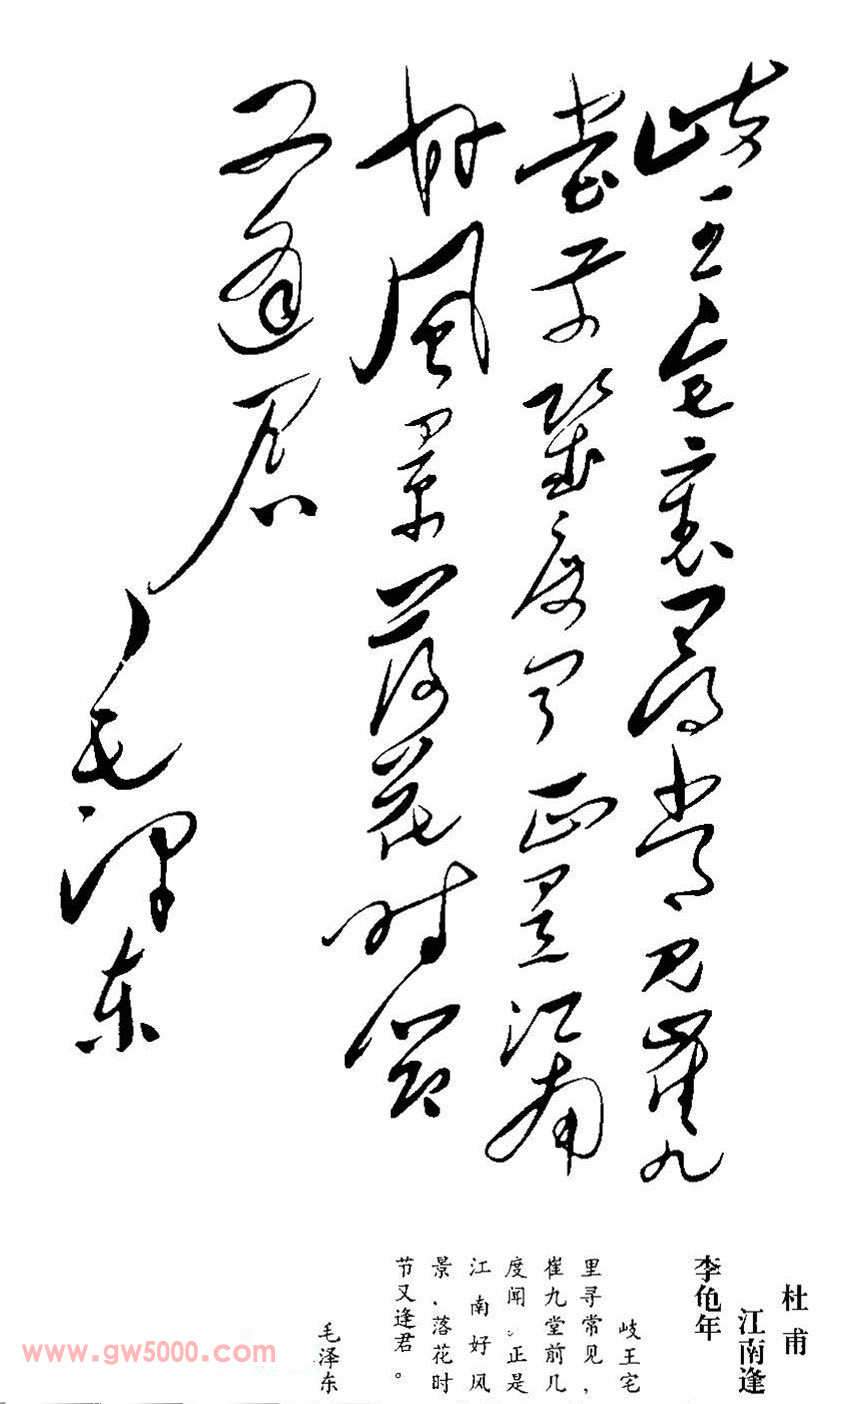 岐王宅裏尋常見崔九
堂前幾度闻正是江南
好風景落花時節
又逢君
毛泽东
杜甫
江南逢
李龟年
岐王宅
里寻常见，
崔九堂前几
度闻。正是
江南好风
景，落花时
节又逢君。
毛泽东
www.gw5000.com